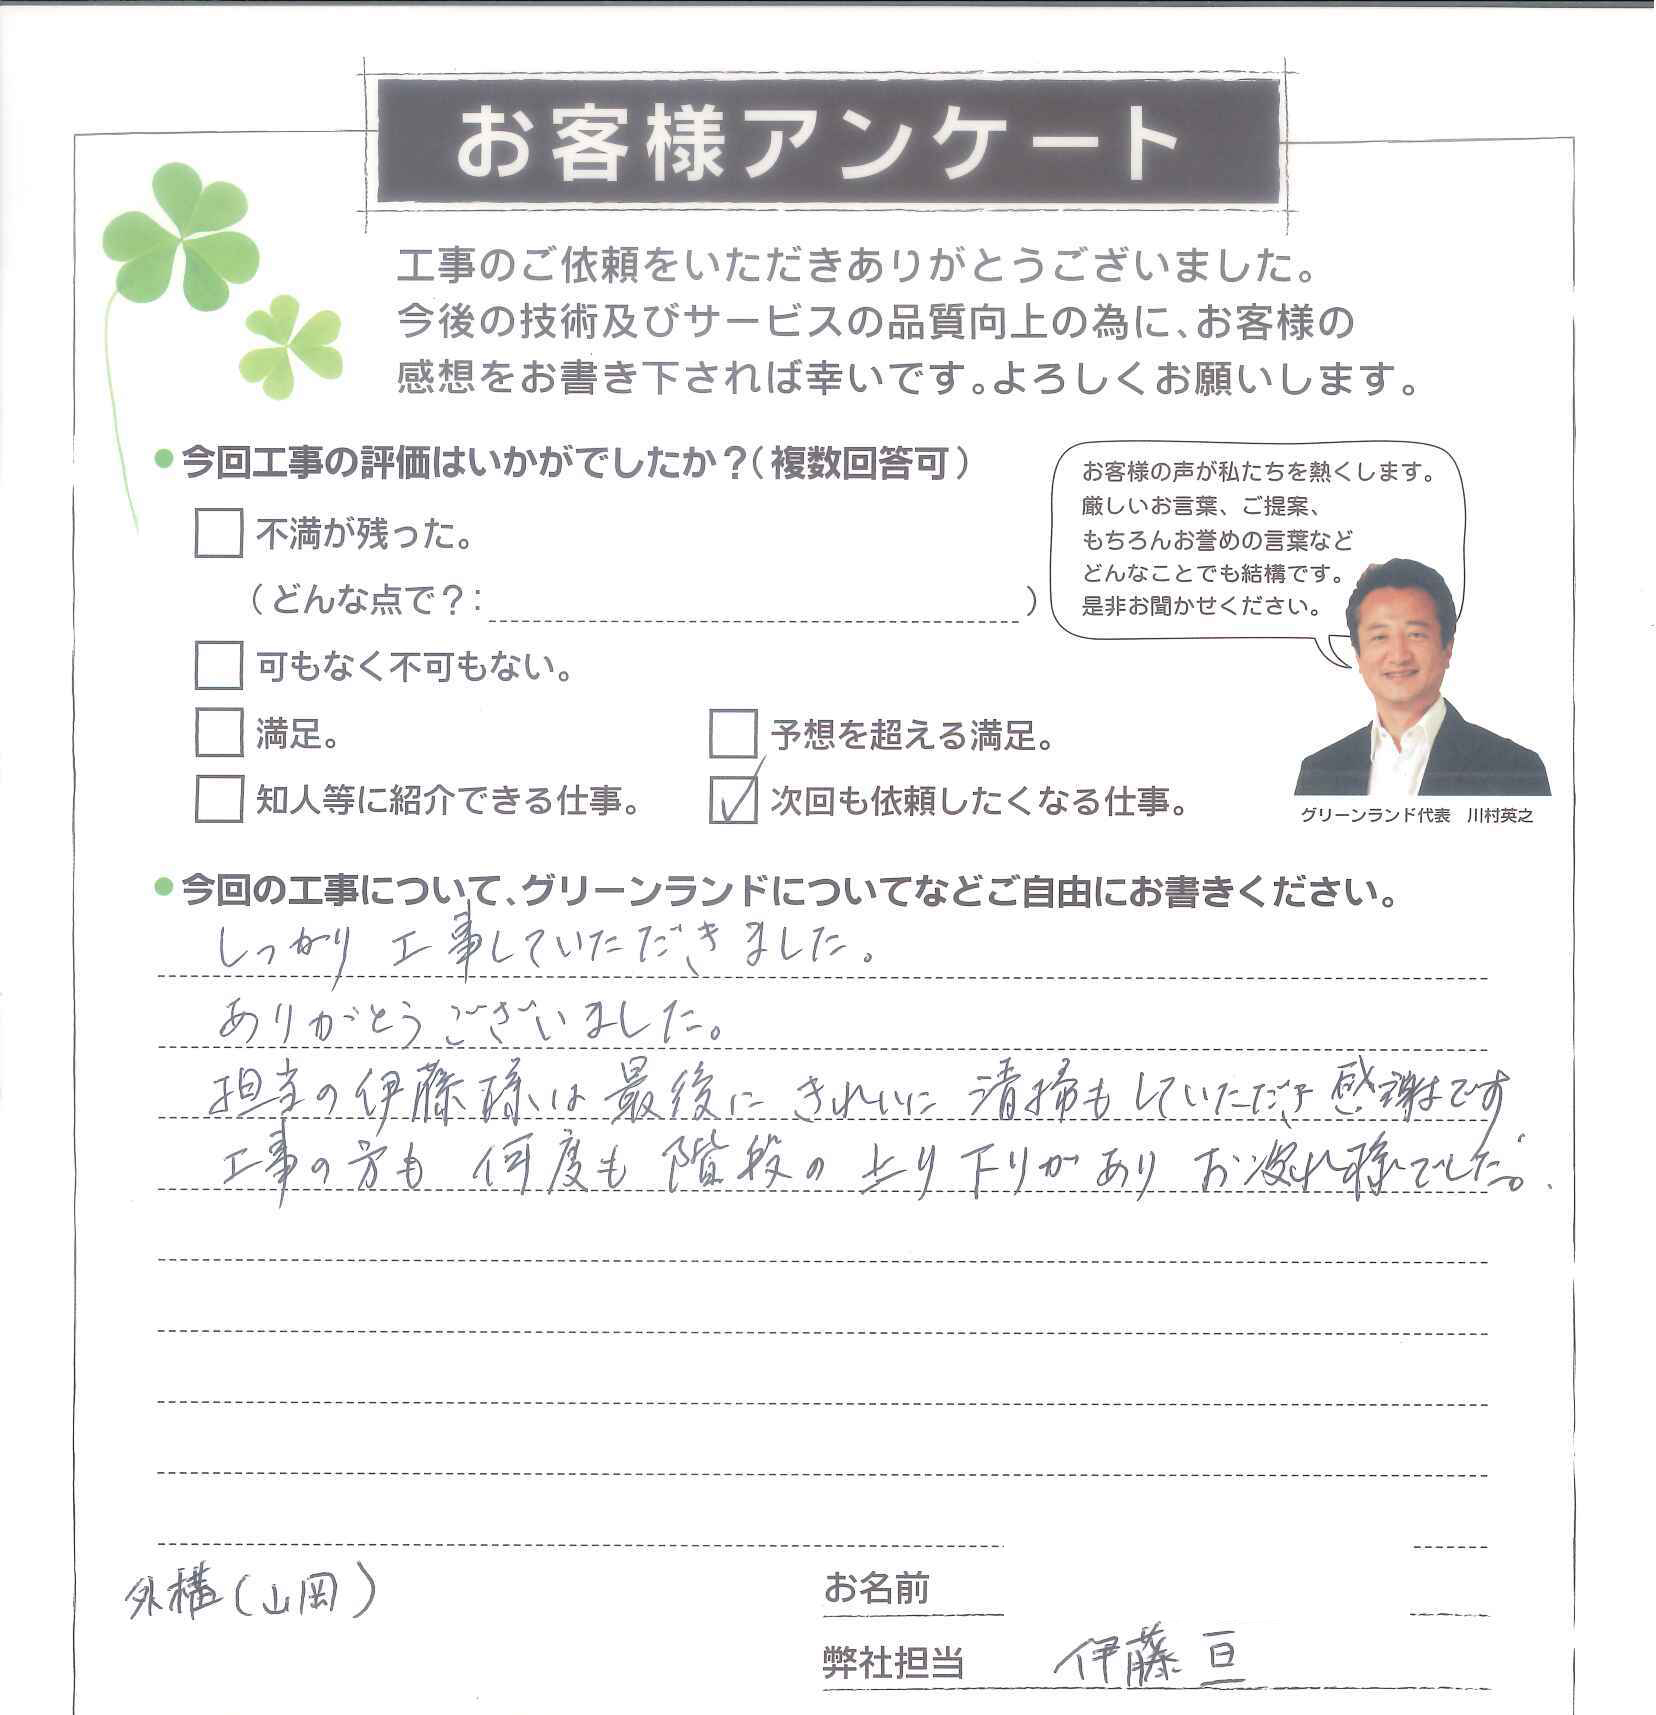 お客様アンケート
工事のご依頼をいただきありがとうございました。
今後の技術及びサービスの品質向上の為に、お客様の
感想をお書き下されば幸いです。よろしくお願いします。
今回工事の評価はいかがでしたか？（複数回答可）
不満が残った。
（どんな点で？：　　　　）
可もなく不可もない。
満足。
予想を超える満足。
知人等に紹介できる仕事。
次回も依頼したくなる仕事。
お客様の声が私たちを熱くします。
厳しいお言葉、ご提案、
もちろんお誉めの言葉など
どんなことでも結構です。
是非お聞かせください。
グリーンランド代表　川村英之
今回の工事について、グリーンランドについてなどご自由にお書きください。
しっかり工事していただきました。
ありがとうございました。
担当の伊藤様は最後にきれいに清掃もしていただき感謝です
工事の方も何度も階段の上り下りがありお疲れ様でした。
外構（山岡）
お名前
弊社担当　伊藤 亘